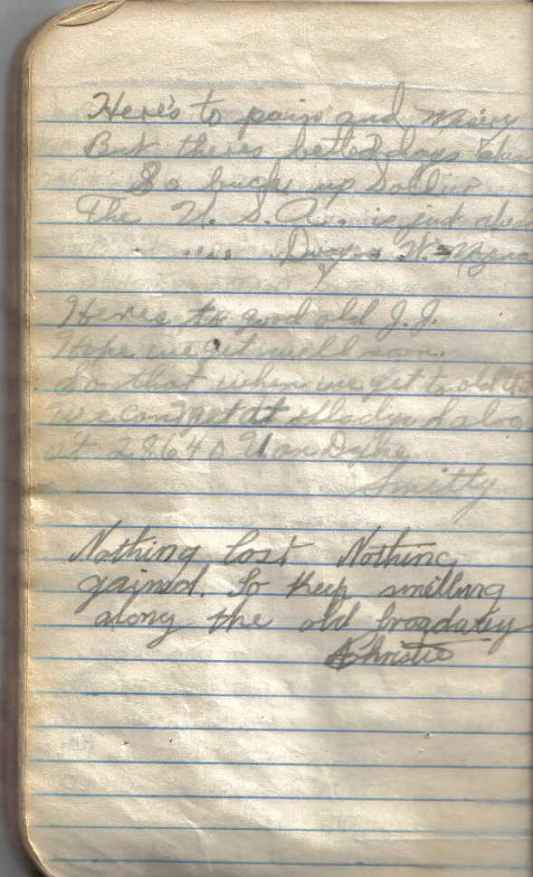 Here's to pain and misery
But theres better days
So buck up Soldier
The U. S. A. is just
Heres to good old J.J.
Hope we get well soon.
So that when we get to old
we can get at
at 28640 Van Dyke
Smitty
Nothing lost Nothing
gained. So Keep smilling
along the old broadway
Christie